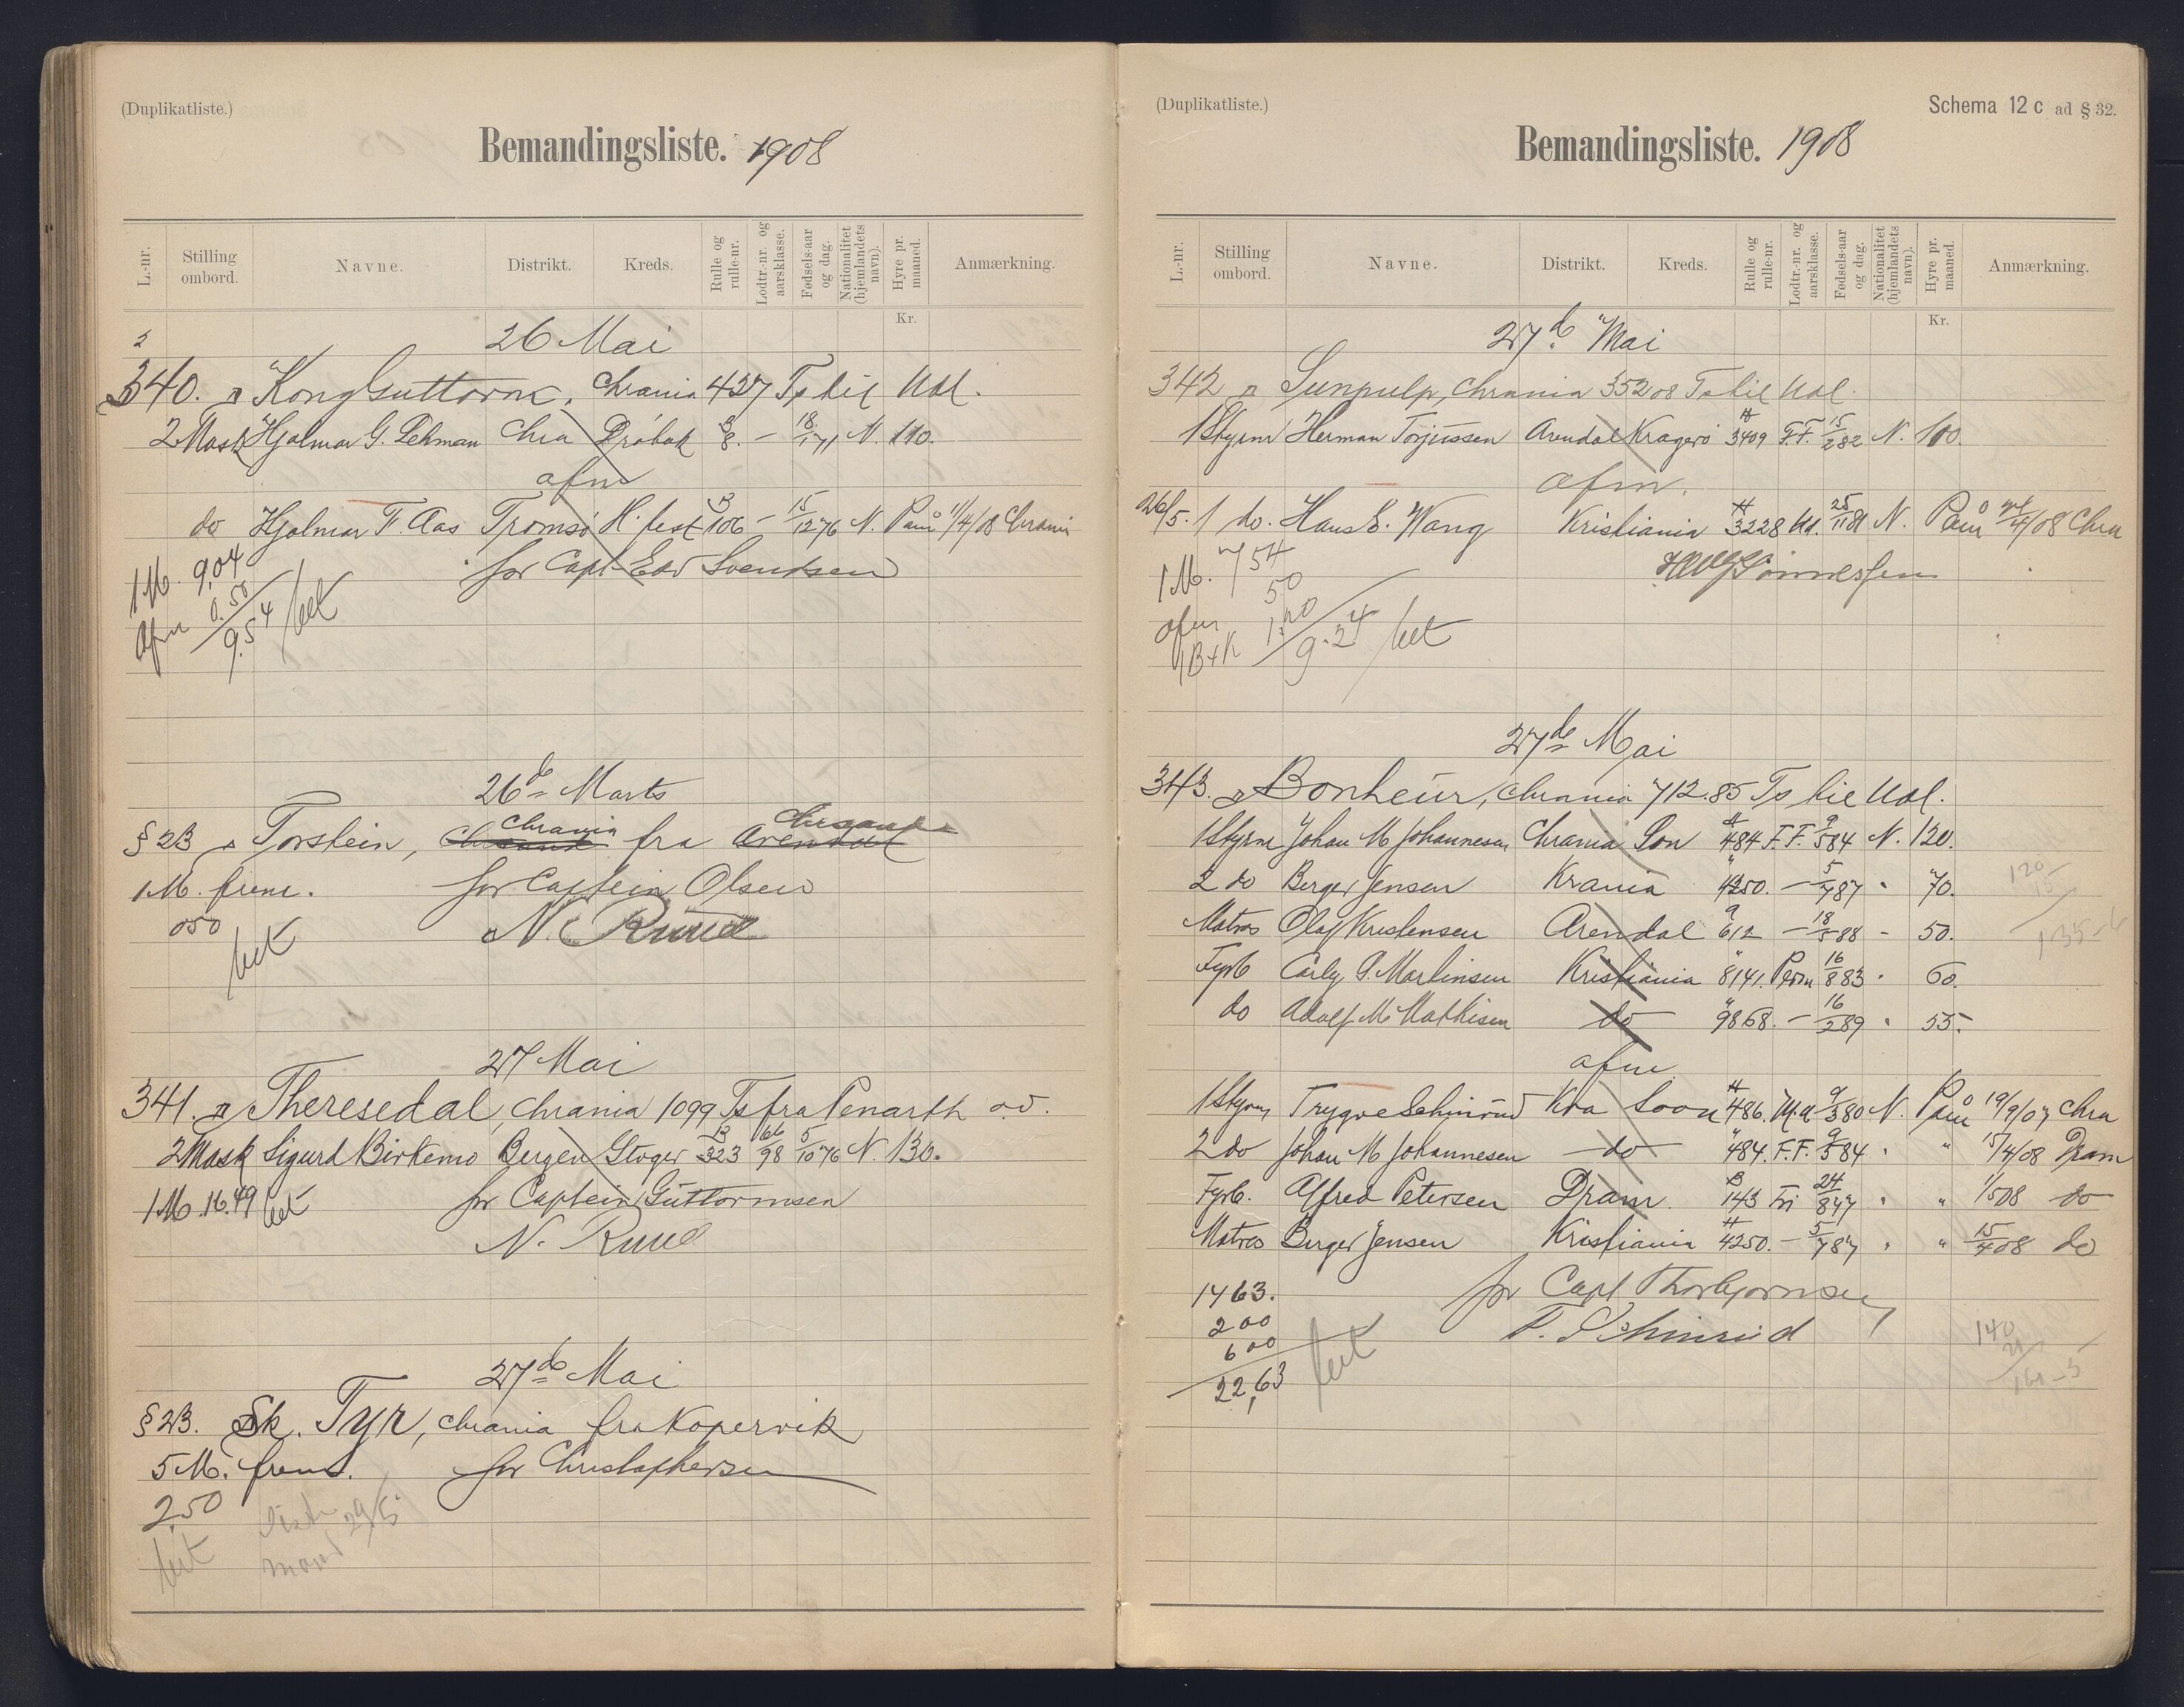 (Duplikatliste.)
Bemandingsliste. 1908
L.-nr.
Stilling ombord.
Navne.
Distrikt.
Kreds.
Rulle og rulle-nr.
Lodtr.-nr. og aarsklasse.
Fødsels-aar og dag.
Nationalitet (hjemlandets navn).
Hyre pr. maaned.
Anmærkning.
Kr.
26 Mai
340. Kong Guttorm, Chrania 427 Ts til Udl.
2 Mask Hjalmar G. Lehman Chra Drøbak B 8. — 18/1 71 N. 110.
afm
do Hjalmar F. Aas Tromsø H. fest B 106 — 15/12 76 N. Paam 11/4/08 Chrania
for Capt Edv Svendsen
1 M. 9,04
Afm 0.50
9.54 bet
26de Marts
§ 2B Torstein, Chrania fra Chrsand
1 M. frem. for Captein Olsen
050 N. Ruud
bet
27 Mai
341. Theresedal, Chrania 1099 Ts fra Penarth o.v.
2 Mask Sigurd Birkemo Bergen B 323 66/98 5/10 76 N. 130.
1 M. 16.49 bet for Captein Guttormsen
N. Ruud
27de Mai
§ 2B. Sk. Tyr, Chrania fra Kopervik
5 M. frem. for Christophersen
2,50
bet
(Duplikatliste.)
Schema 12 c ad § 32.
Bemandingsliste. 1908
L.-nr.
Stilling ombord.
Navne.
Distrikt.
Kreds.
Rulle og rulle-nr.
Lodtr.-nr. og aarsklasse.
Fødsels-aar og dag.
Nationalitet (hjemlandets navn).
Hyre pr. maaned.
Anmærkning.
Kr.
27de Mai
342 Sunpulp, Chrania 352 08 Ts til Udl.
1 Styrm Herman Torjussen Arendal Kragerø A 3409 F.F. 15/2 82 N. 100.
afm.
26/5. 1 do. Hans E. Wang Kristiania A 3228 Ud. 25/11 81 N. Paam /4/08 Chra
1 M. 7 54
afm 50
1 B+K 1.20
9.24 bet
27de Mai
343. Bonheur, Chrania 712.85 Ts til Udl.
1 Styrm Johan M Johannesen Chrania Son A 484 F.F. 9/5 84 N. 120.
2 do Berger Jensen Krania " 4250. — 5/7 87 " 70.
Matros Olaf Kristensen Arendal 612 — 18/5 88 - 50.
Fyrb Carly P. Martinsen Kristiania " 8141. Perm 16/8 83 " 60.
do Adolf M Mathisen do " 9868. — 16/2 89 " 55.
120
15
135-6
afm
1 Styrm Trygve Schinrud Kra Soon A 486. 9/3 80 N. Paam 19/9/07 Chra
2 do Johan M Johannesen do " 484. F.F. 9/5 84 " " 15/4/08 Dram
Fyrb. Alfred Petersen Dram. B 143 Fri 24/8 47 " " 1/5 08 do
Matros Berger Jensen Kristiania A 4250. — 5/7 87 " " 15/4 08 do
1463. for Capt Thorbjørnsen
200 T. Schinrud
600
22,63 bet
140
21
161-5